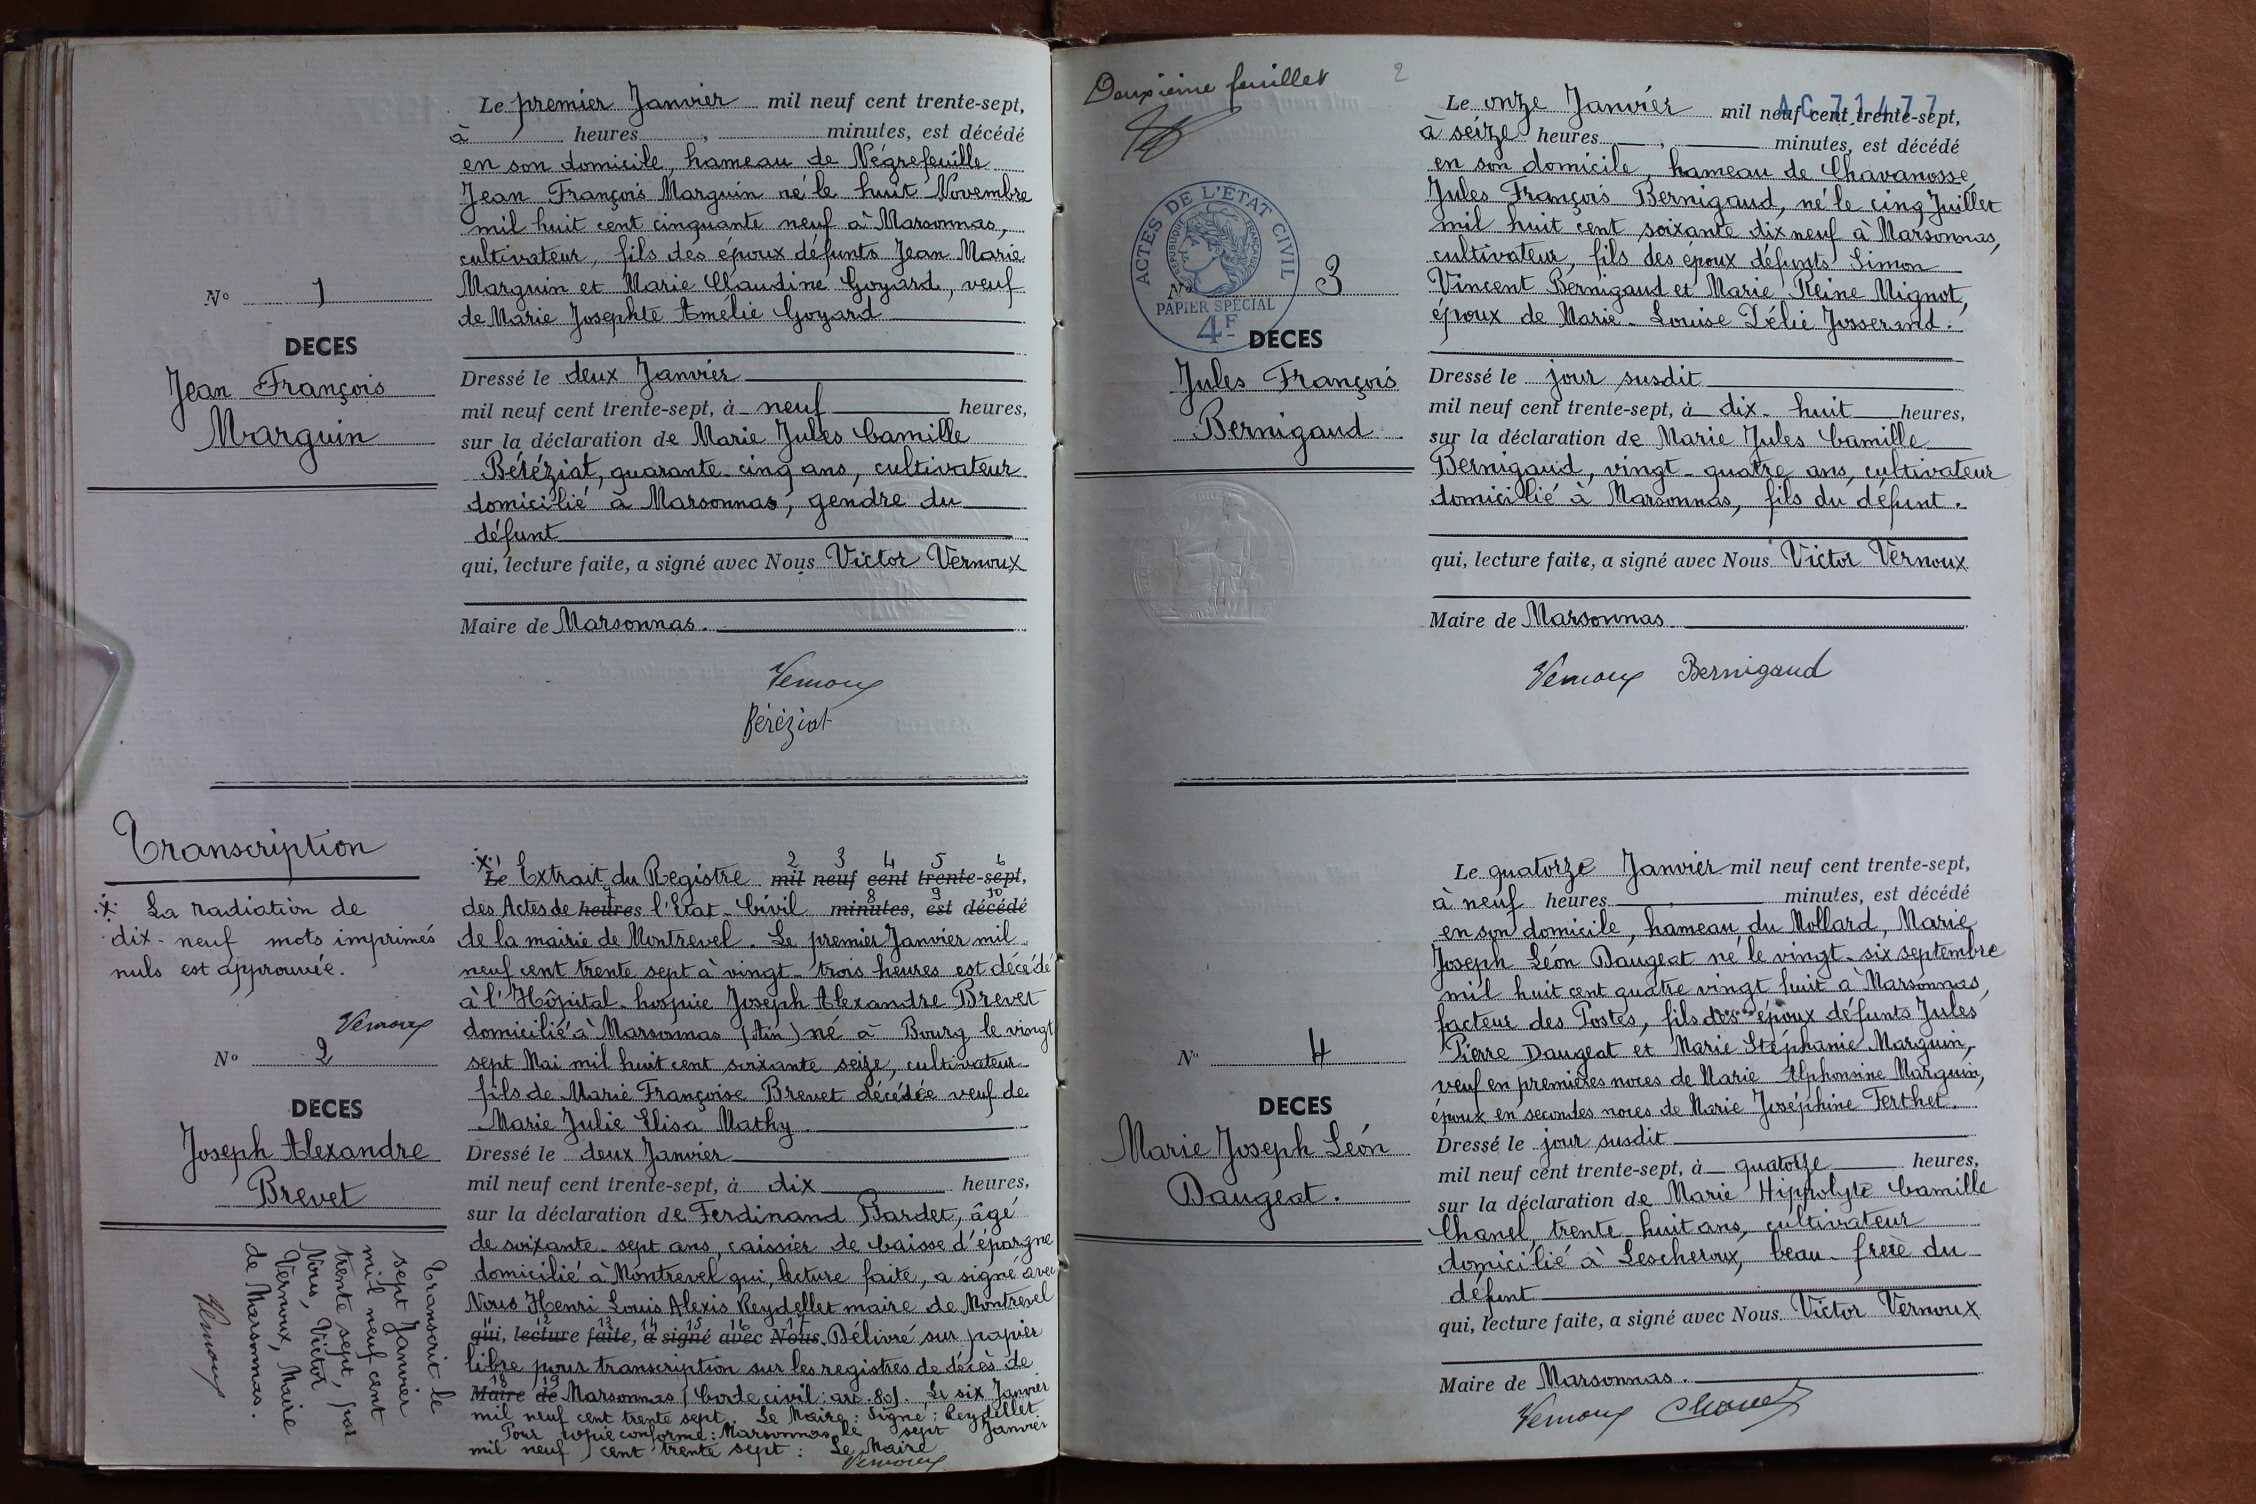 Le premier Janvier mil neuf cent trente-sept,
à heures , minutes, est décédé
en son domicile, hameau de Négrefeuille
Jean François Marguin né le huit Novembre
mil huit cent cinquante neuf à Marsonnas,
cultivateur, fils des époux défunts Jean Marie
Marguin et Marie Claudine Goyard, veuf
de Marie Josephte Amélie Goyard
N° 1
DECES
Jean François
Marguin
Dressé le deux Janvier
mil neuf cent trente-sept, à neuf heures,
sur la déclaration de Marie Jules Camille
Béréziat, quarante-cinq ans, cultivateur
domicilié à Marsonnas, gendre du
défunt
qui, lecture faite, a signé avec Nous Victor Vernoux
Maire de Marsonnas.
Vernoux
Béréziat
Transcription
.x. La radiation de
dix-neuf mots imprimés
nuls est approuvée.
Vernoux
N° 2
DECES
Joseph Alexandre
Brevet
Transcrit le
sept Janvier
mil neuf cent
trente sept, par
Nous, Victor
Vernoux, Maire
de Marsonnas.
Vernoux
.x. 1 2 3 4 5 6
Le Extrait du Registre mil neuf cent trente-sept,
7 8 9 10
des Actes de heures l'Etat-Civil minutes, est décédé
de la mairie de Montrevel. Le premier Janvier mil
neuf cent trente sept à vingt-trois heures est décédé
à l'Hôpital-hospice Joseph Alexandre Brevet
domicilié à Marsonnas (Ain) né à Bourg le vingt
sept Mai mil huit cent soixante seize, cultivateur
fils de Marie Françoise Brevet décédée veuf de
Marie Julie Elisa Mathy
Dressé le deux Janvier
mil neuf cent trente-sept, à dix heures,
sur la déclaration de Ferdinand Bardet, âgé
de soixante-sept ans, caissier de Caisse d'épargne
domicilié à Montrevel qui, lecture faite, a signé avec
Nous Henri Louis Alexis Reydellet maire de Montrevel
11 12 13 14 15 16 17
qui, lecture faite, a signé avec Nous. Délivré sur papier
libre pour transcription sur les registres de décès de
18 19
Maire de Marsonnas (Code civil: art. 80). Le six Janvier
mil neuf cent trente sept. Le Maire: Signé: Reydellet
Pour copie conforme: Marsonnas le sept Janvier
mil neuf cent trente sept: Le Maire
Vernoux
Deuxième feuillet
2
AC 71477
ACTES DE L'ETAT CIVIL
REPUBLIQUE FRANÇAISE
PAPIER SPECIAL
4F
Le onze Janvier mil neuf cent trente-sept,
à seize heures , minutes, est décédé
en son domicile, hameau de Chavanosse,
Jules François Bernigaud, né le cinq Juillet
mil huit cent soixante dix neuf à Marsonnas,
cultivateur, fils des époux défunts Simon
Vincent Bernigaud et Marie Reine Mignot,
époux de Marie-Louise Délie Josserand.
N° 3
DECES
Jules François
Bernigaud
Dressé le jour susdit
mil neuf cent trente-sept, à dix-huit heures,
sur la déclaration de Marie Jules Camille
Bernigaud, vingt-quatre ans, cultivateur
domicilié à Marsonnas, fils du défunt.
qui, lecture faite, a signé avec Nous Victor Vernoux
Maire de Marsonnas
Vernoux Bernigaud
Le quatorze Janvier mil neuf cent trente-sept,
à neuf heures , minutes, est décédé
en son domicile, hameau du Mollard, Marie
Joseph Léon Daugeat né le vingt-six septembre
mil huit cent quatre vingt huit à Marsonnas,
facteur des Postes, fils des époux défunts Jules
Pierre Daugeat et Marie Stéphanie Marguin,
veuf en premières noces de Marie Alphonsine Marguin,
époux en secondes noces de Marie Joséphine Ferthet.
N° 4
DECES
Marie Joseph Léon
Daugeat.
Dressé le jour susdit
mil neuf cent trente-sept, à quatorze heures,
sur la déclaration de Marie Hippolyte Camille
Chanel, trente-huit ans, cultivateur
domicilié à Lescheroux, beau-frère du
défunt
qui, lecture faite, a signé avec Nous Victor Vernoux
Maire de Marsonnas.
Vernoux Chanel